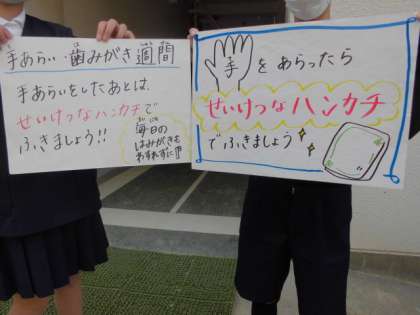 手あらい・歯みがき週間
手あらいをしたあとは、
せいけつなハンカチで
ふきましょう!!
毎日の
はみがきも
わすれずに!!
手をあらったら
せいけつなハンカチ
でふきましょう